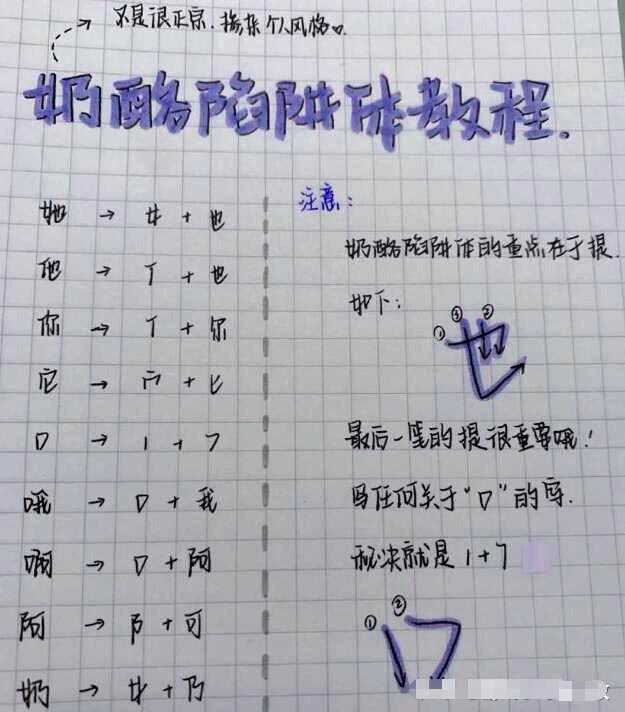 不是很正宗.掺杂个人风格。
奶酪陷阱体教程.
她 → 女 + 也
他 → 亻 + 也
你 → 亻 + 尔
它 → 宀 + 匕
口 → 1 + 7
哦 → 口 + 我
啊 → 口 + 阿
阿 → 阝 + 可
奶 → 女 + 乃
注意:
奶酪陷阱体的重点在于提.
如下:
① ③ ②
也
最后一笔的提很重要哦!
写任何关于“口”的字.
秘诀就是 1 + 7
① ②
口